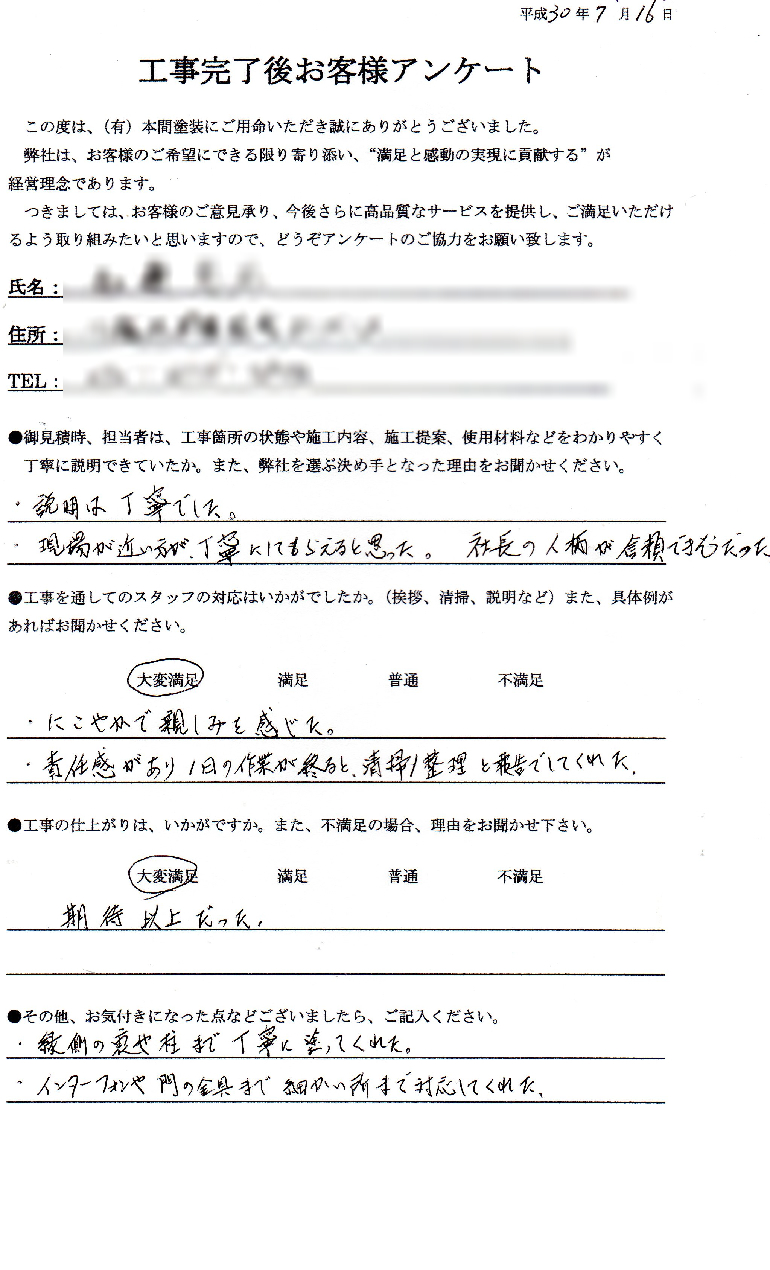 平成30年7月16日
工事完了後お客様アンケート
この度は、（有）本間塗装にご用命いただき誠にありがとうございました。
弊社は、お客様のご希望にできる限り寄り添い、“満足と感動の実現に貢献する”が
経営理念であります。
つきましては、お客様のご意見承り、今後さらに高品質なサービスを提供し、ご満足いただけ
るよう取り組みたいと思いますので、どうぞアンケートのご協力をお願い致します。
氏名：
住所：
TEL：
●御見積時、担当者は、工事箇所の状態や施工内容、施工提案、使用材料などをわかりやすく
丁寧に説明できていたか。また、弊社を選ぶ決め手となった理由をお聞かせください。
・説明は丁寧でした。
・現場が近い方が、丁寧にしてもらえると思った。 社長の人柄が信頼できそうだった
●工事を通してのスタッフの対応はいかがでしたか。（挨拶、清掃、説明など）また、具体例が
あればお聞かせください。
大変満足 満足 普通 不満足
・にこやかで親しみを感じた。
・責任感があり1日の作業が終ると、清掃/整理と報告をしてくれた。
●工事の仕上がりは、いかがですか。また、不満足の場合、理由をお聞かせ下さい。
大変満足 満足 普通 不満足
期待以上だった。
●その他、お気付きになった点などございましたら、ご記入ください。
・縁側の裏や柱まで丁寧に塗ってくれた。
・インターフォンや門の金具まで細かい所まで対応してくれた。